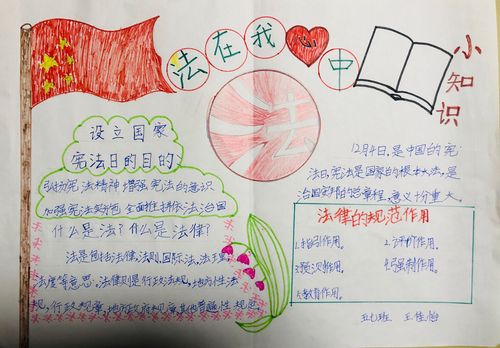 法在我心中
小知识
设立国家
宪法日的目的
弘扬宪法精神增强宪法的意识
加强宪法实施 全面推进依法治国
什么是法？什么是法律？
法是包括法律,法则,国际法,法理,
法度等意思。法律则是行政法规,地方性法
规,行政规章,地方政府规章,其他普遍性规范。
法
12月4日,是中国的宪
法日,宪法是国家的根本大法,是
治国安邦的总章程,意义十分重大。
法律的规范作用
1.指引作用。 2.评价作用。
3.预测作用。 4.强制作用。
5.教育作用。
班 王佳怡